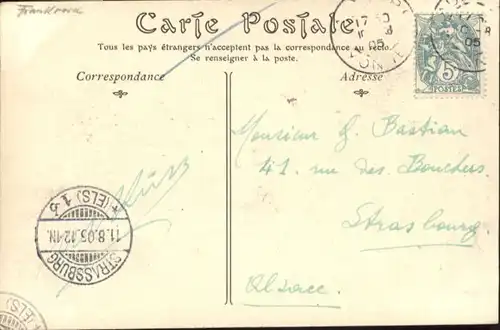 Frankreich
Carte Postale
Tous les pays étrangers n'acceptent pas la correspondance au recto.
Se renseigner à la poste.
Correspondance
Adresse
5
POSTES
05
05
Monsieur G. Bastian
41. rue des Bouchers
Strasbourg.
Alsace.
STRASSBURG
11.8.05.12-1N.
*(ELS) 1 b
(ELS)